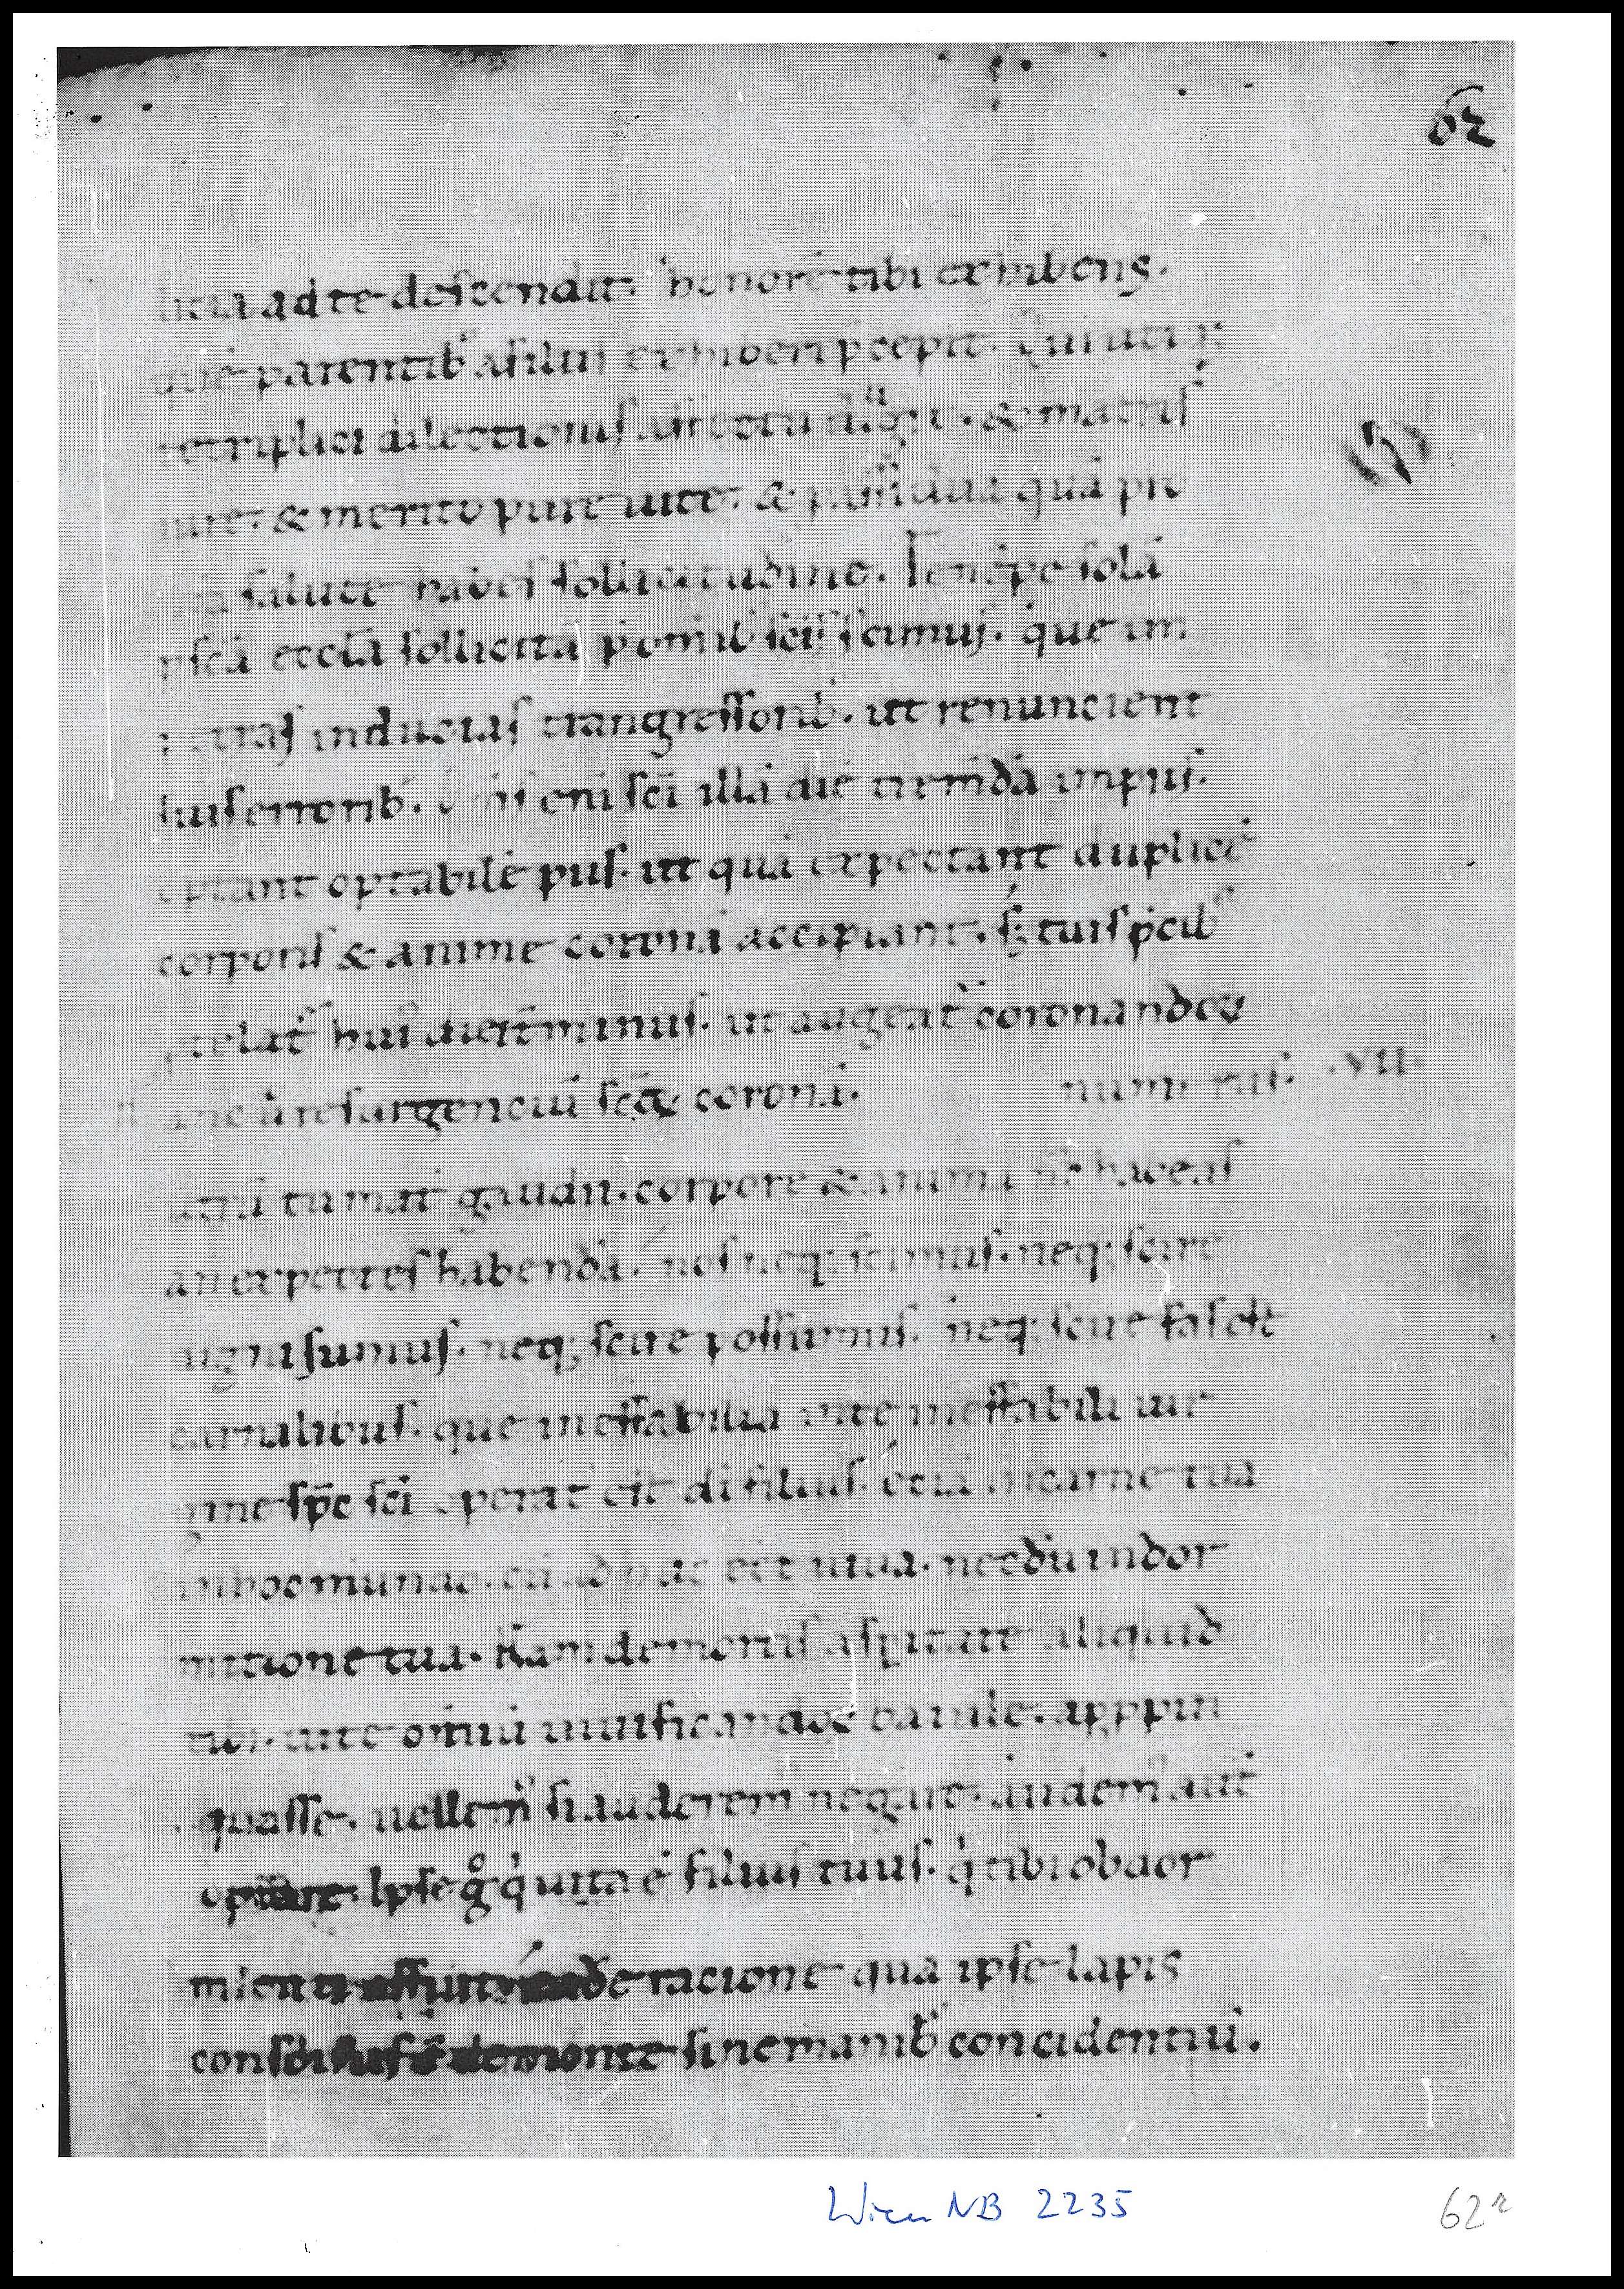 62
licia ad te descendit. honorē tibi exhibens.
quē parentib' a filiis exhiberi p̄cepit. Qui utiq;
te triplici dilectionis affectu diligit. & matris
iure. & merito pure uite. & assidua quā pro
salute habes sollicitudine. Te nēpe solā
p scā eccl̄a sollicitā p̄ om̄ib' scīs scimus. que im
petras inducias trangressorib'. ut renuncient
suis errorib'. Om̄s eni sc̄i illā diē tremēdā impiis.
optant optabilē piis. ut quā expectant duplicē
corporis & anime coronā accipiant. sȝ tuis p̄cib'
huī diei t̄minus. ut augeat᷑ coronandoꝝ
resurgenciū scōꝝ coronā. numerus. .VII.
utrū tu mat̄ gaudii. corpore & anima habeas
an expectes habendā. nos neq; scimus. neq; scire
digni sumus. neq; scire possumus. neq; scire fas est
carnalibus. que ineffabilia uite ineffabili uir
gine sp̄c sc̄i operat᷑ est di filius. eciā in carne tua
in hoc mundo. cū adhuc ēet uiua. necdū in dor
mitione tua. Nam de mortis asp̄itate aliquid
tibi. uite om̄iū uiuificandoꝝ baiule. app̄pin
quasse. uellem' si auderem' negare. audem' aut̄
optare. Ipse g° q̇ uita ē filius tuus. q̇ tibi obdor
mienti affuit. eadē racione qua ipse lapis
conscisus ē de monte sine manib' concidentiū.
Wien NB 2235
62r